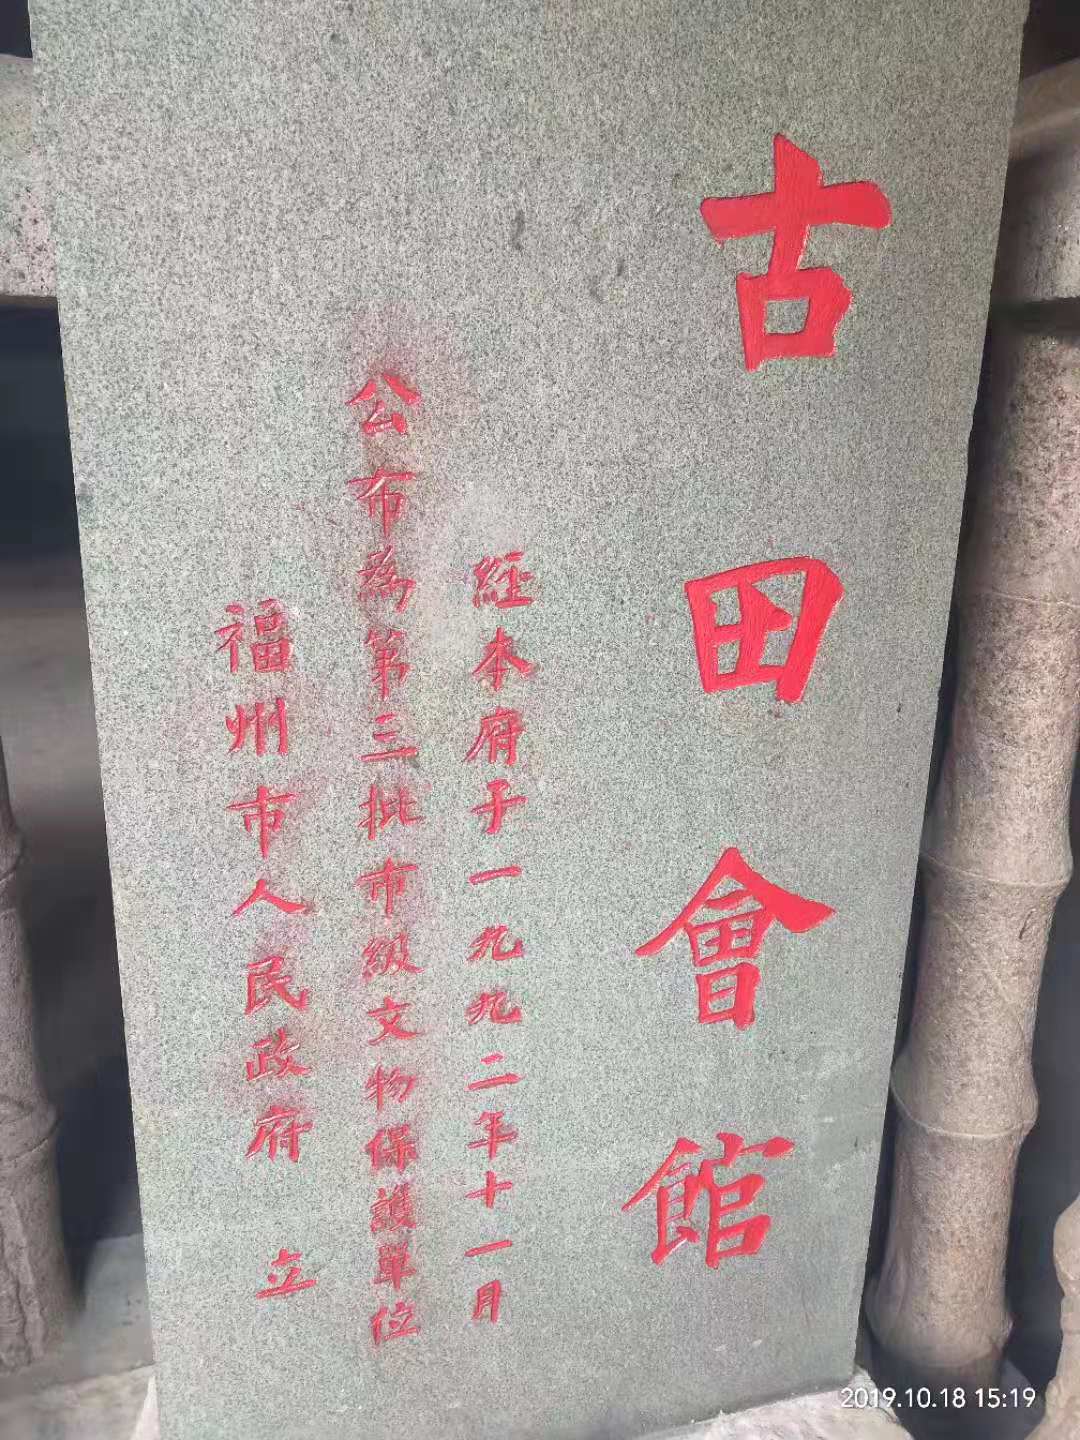 古田會館
經本府于一九九二年十一月
公布為第三批市級文物保護單位
福州市人民政府 立
2019.10.18 15:19